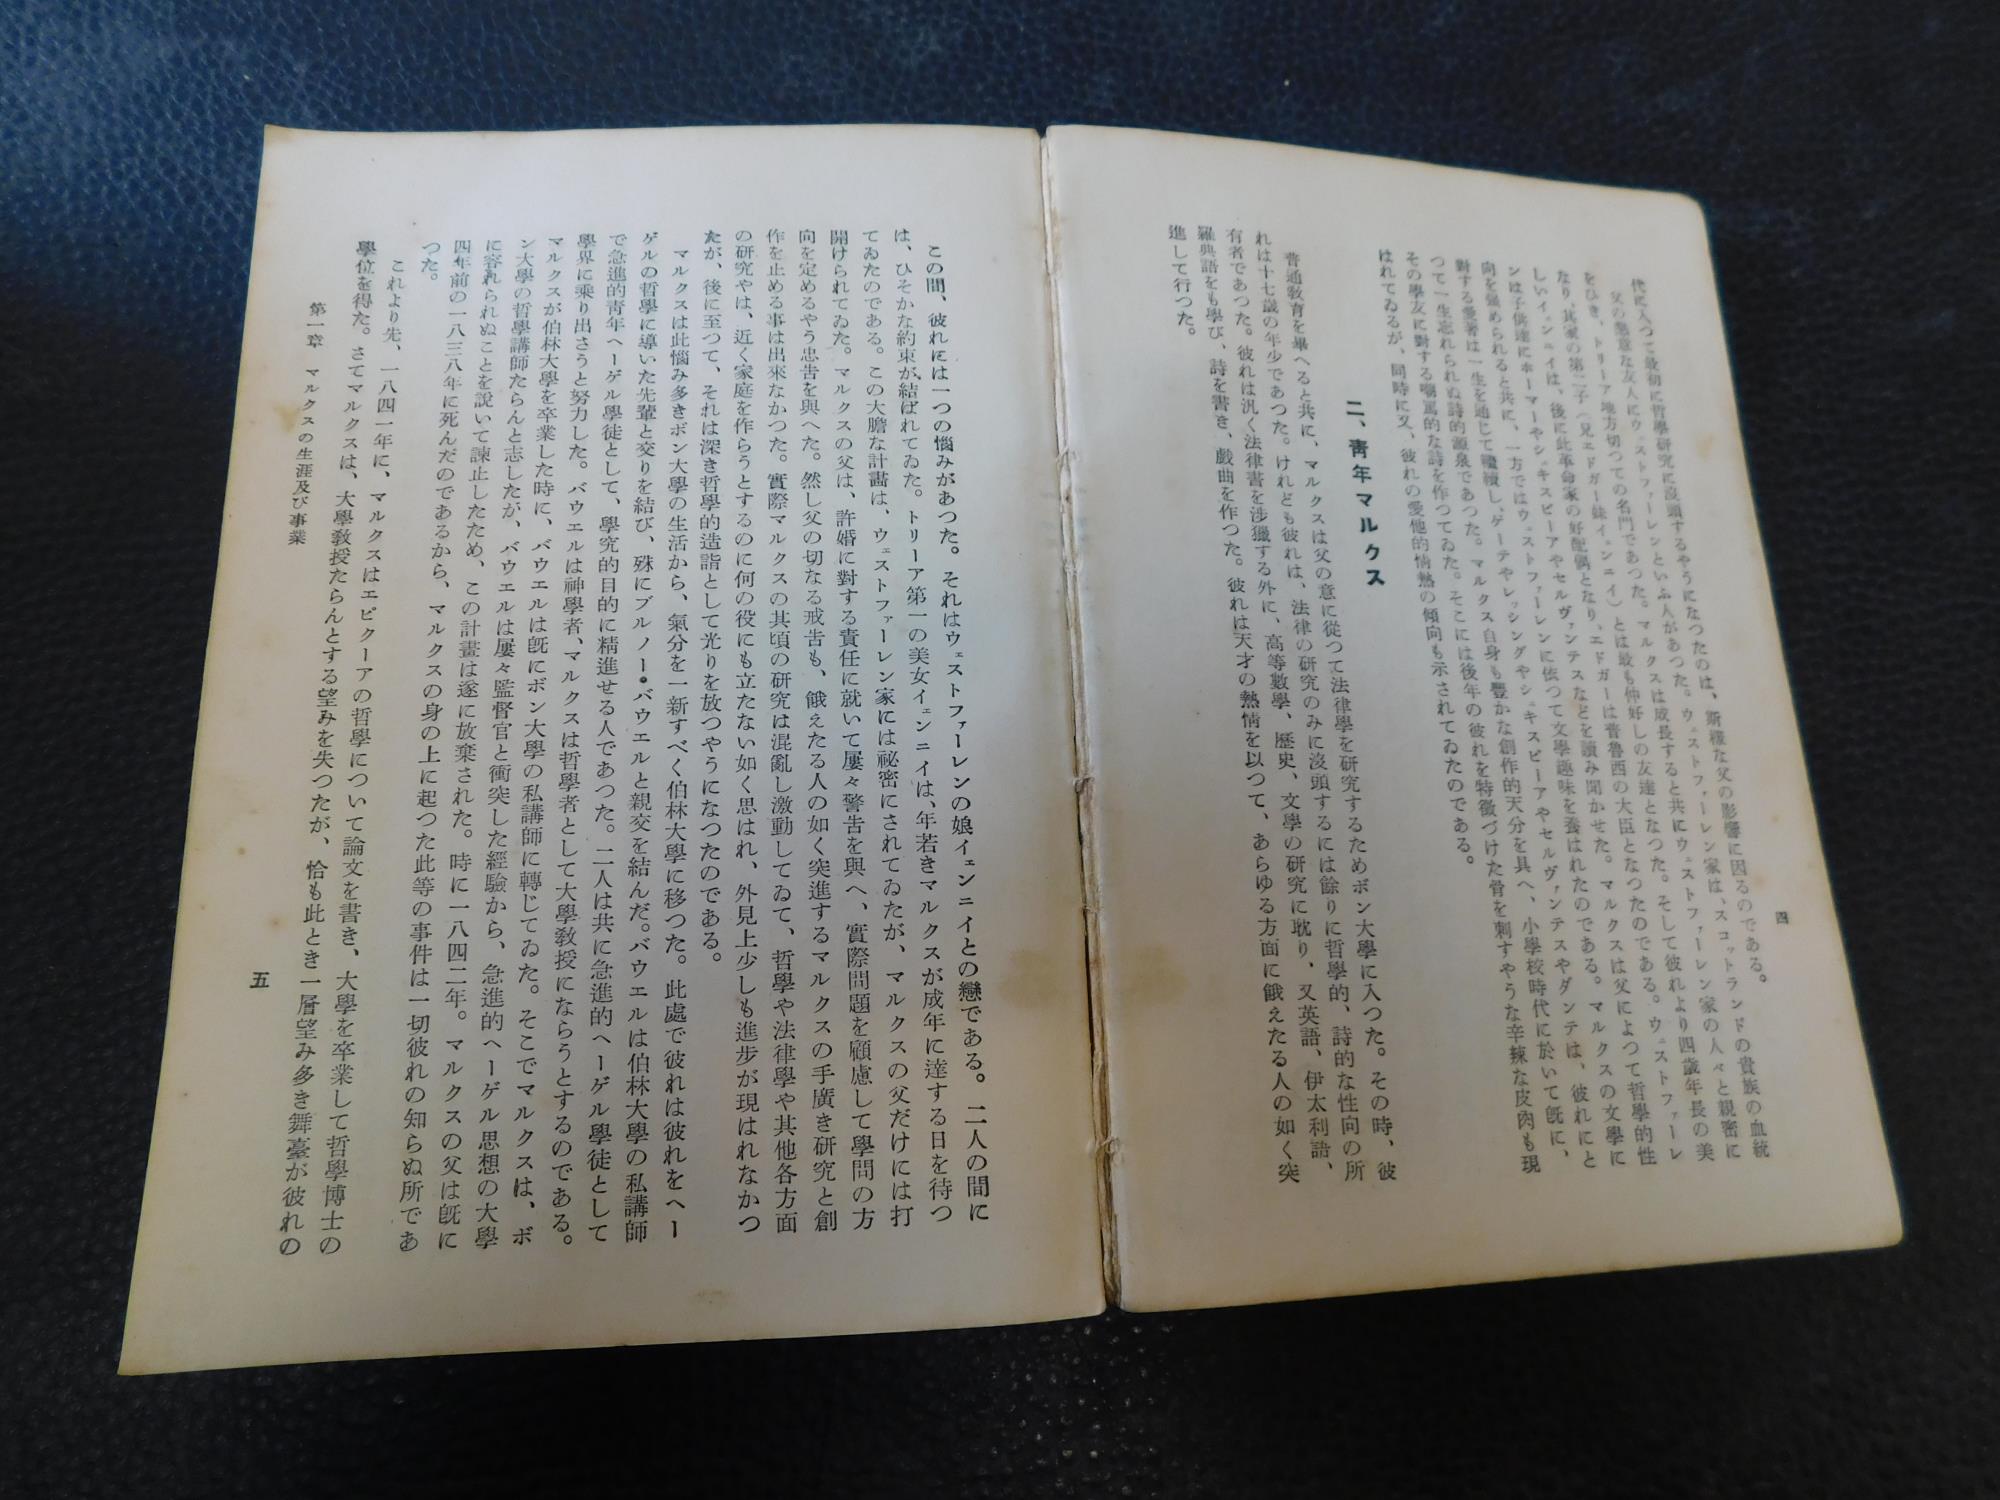 四
代に入つて最初に哲學研究に沒頭するやうになつたのは、斯樣な父の影響に因るのである。
父の懇意な友人にウェストファーレンといふ人があつた。ウェストファーレン家は、スコットランドの貴族の血統
をひき、トリーア地方切つての名門であつた。マルクスは成長すると共にウェストファーレン家の人々と親密に
なり、其家の第二子(兄エドガー妹イェンニイ)とは最も仲好しの友達となつた。そして彼れより四歲年長の美
しいイェンニイは、後に此革命家の好配偶となり、エドガーは普魯西の大臣となつたのである。ウェストファーレ
ンは子供達にホーマーやシェキスピーアやセルヴァンテスなどを讀み聞かせた。マルクスは父によつて哲學的性
向を强められると共に、一方ではウェストファーレンに依つて文學趣味を養はれたのである。マルクスの文學に
對する愛著は一生を通じて繼續し、ゲーテやレッシングやシェキスピーアやセルヴァンテスやダンテは、彼れにと
つて一生忘れられぬ詩的源泉であつた。マルクス自身も豐かな創作的天分を具へ、小學校時代に於いて旣に、
その學友に對する嘲罵的な詩を作つてゐた。そこには後年の彼れを特徵づけた骨を刺すやうな辛辣な皮肉も現
はれてゐるが、同時に又、彼れの愛他的情熱の傾向も示されてゐたのである。
二、靑年マルクス
普通敎育を畢へると共に、マルクスは父の意に從つて法律學を硏究するためボン大學に入つた。その時、彼
れは十七歲の年少であつた。けれども彼れは、法律の硏究のみに沒頭するには餘りに哲學的、詩的な性向の所
有者であつた。彼れは汎く法律書を涉獵する外に、高等數學、歷史、文學の硏究に耽り、又英語、伊太利語、
羅典語をも學び、詩を書き、戲曲を作つた。彼れは天才の熱情を以つて、あらゆる方面に餓えたる人の如く突
進して行つた。
この間、彼れには一つの惱みがあつた。それはウェストファーレンの娘イェンニイとの戀である。二人の間に
は、ひそかな約束が結ばれてゐた。トリーア第一の美女イェンニイは、年若きマルクスが成年に達する日を待つ
てゐたのである。この大膽な計畫は、ウェストファーレン家には祕密にされてゐたが、マルクスの父だけには打
開けられてゐた。マルクスの父は、許婚に對する責任に就いて屢々警告を與へ、實際問題を顧慮して學問の方
向を定めるやう忠吿を與へた。然し父の切なる戒吿も、餓えたる人の如く突進するマルクスの手廣き硏究と創
作を止める事は出來なかつた。實際マルクスの其頃の硏究は混亂し激動してゐて、哲學や法律學や其他各方面
の硏究やは、近く家庭を作らうとするのに何の役にも立たない如く思はれ、外見上少しも進步が現はれなかつ
たが、後に至つて、それは深き哲學的造詣として光りを放つやうになつたのである。
マルクスは此惱み多きボン大學の生活から、氣分を一新すべく伯林大學に移つた。此處で彼れは彼れをヘー
ゲルの哲學に導いた先輩と交りを結び、殊にブルノー・バウエルと親交を結んだ。バウエルは伯林大學の私講師
で急進的靑年ヘーゲル學徒として、學究的目的に精進せる人であつた。二人は共に急進的ヘーゲル學徒として
學界に乘り出さうと努力した。バウエルは神學者、マルクスは哲學者として大學敎授にならうとするのである。
マルクスが伯林大學を卒業した時に、バウエルは旣にボン大學の私講師に轉じてゐた。そこでマルクスは、ボ
ン大學の哲學講師たらんと志したが、バウエルは屢々監督官と衝突した經驗から、急進的ヘーゲル思想の大學
に容れられぬことを說いて諫止したため、この計畫は遂に放棄された。時に一八四二年。マルクスの父は旣に
四年前の一八三八年に死んだのであるから、マルクスの身の上に起つた此等の事件は一切彼れの知らぬ所であ
つた。
これより先、一八四一年に、マルクスはエピクーアの哲學について論文を書き、大學を卒業して哲學博士の
學位を得た。さてマルクスは、大學敎授たらんとする望みを失つたが、恰も此とき一層望み多き舞臺が彼れの
第一章 マルクスの生涯及び事業
五